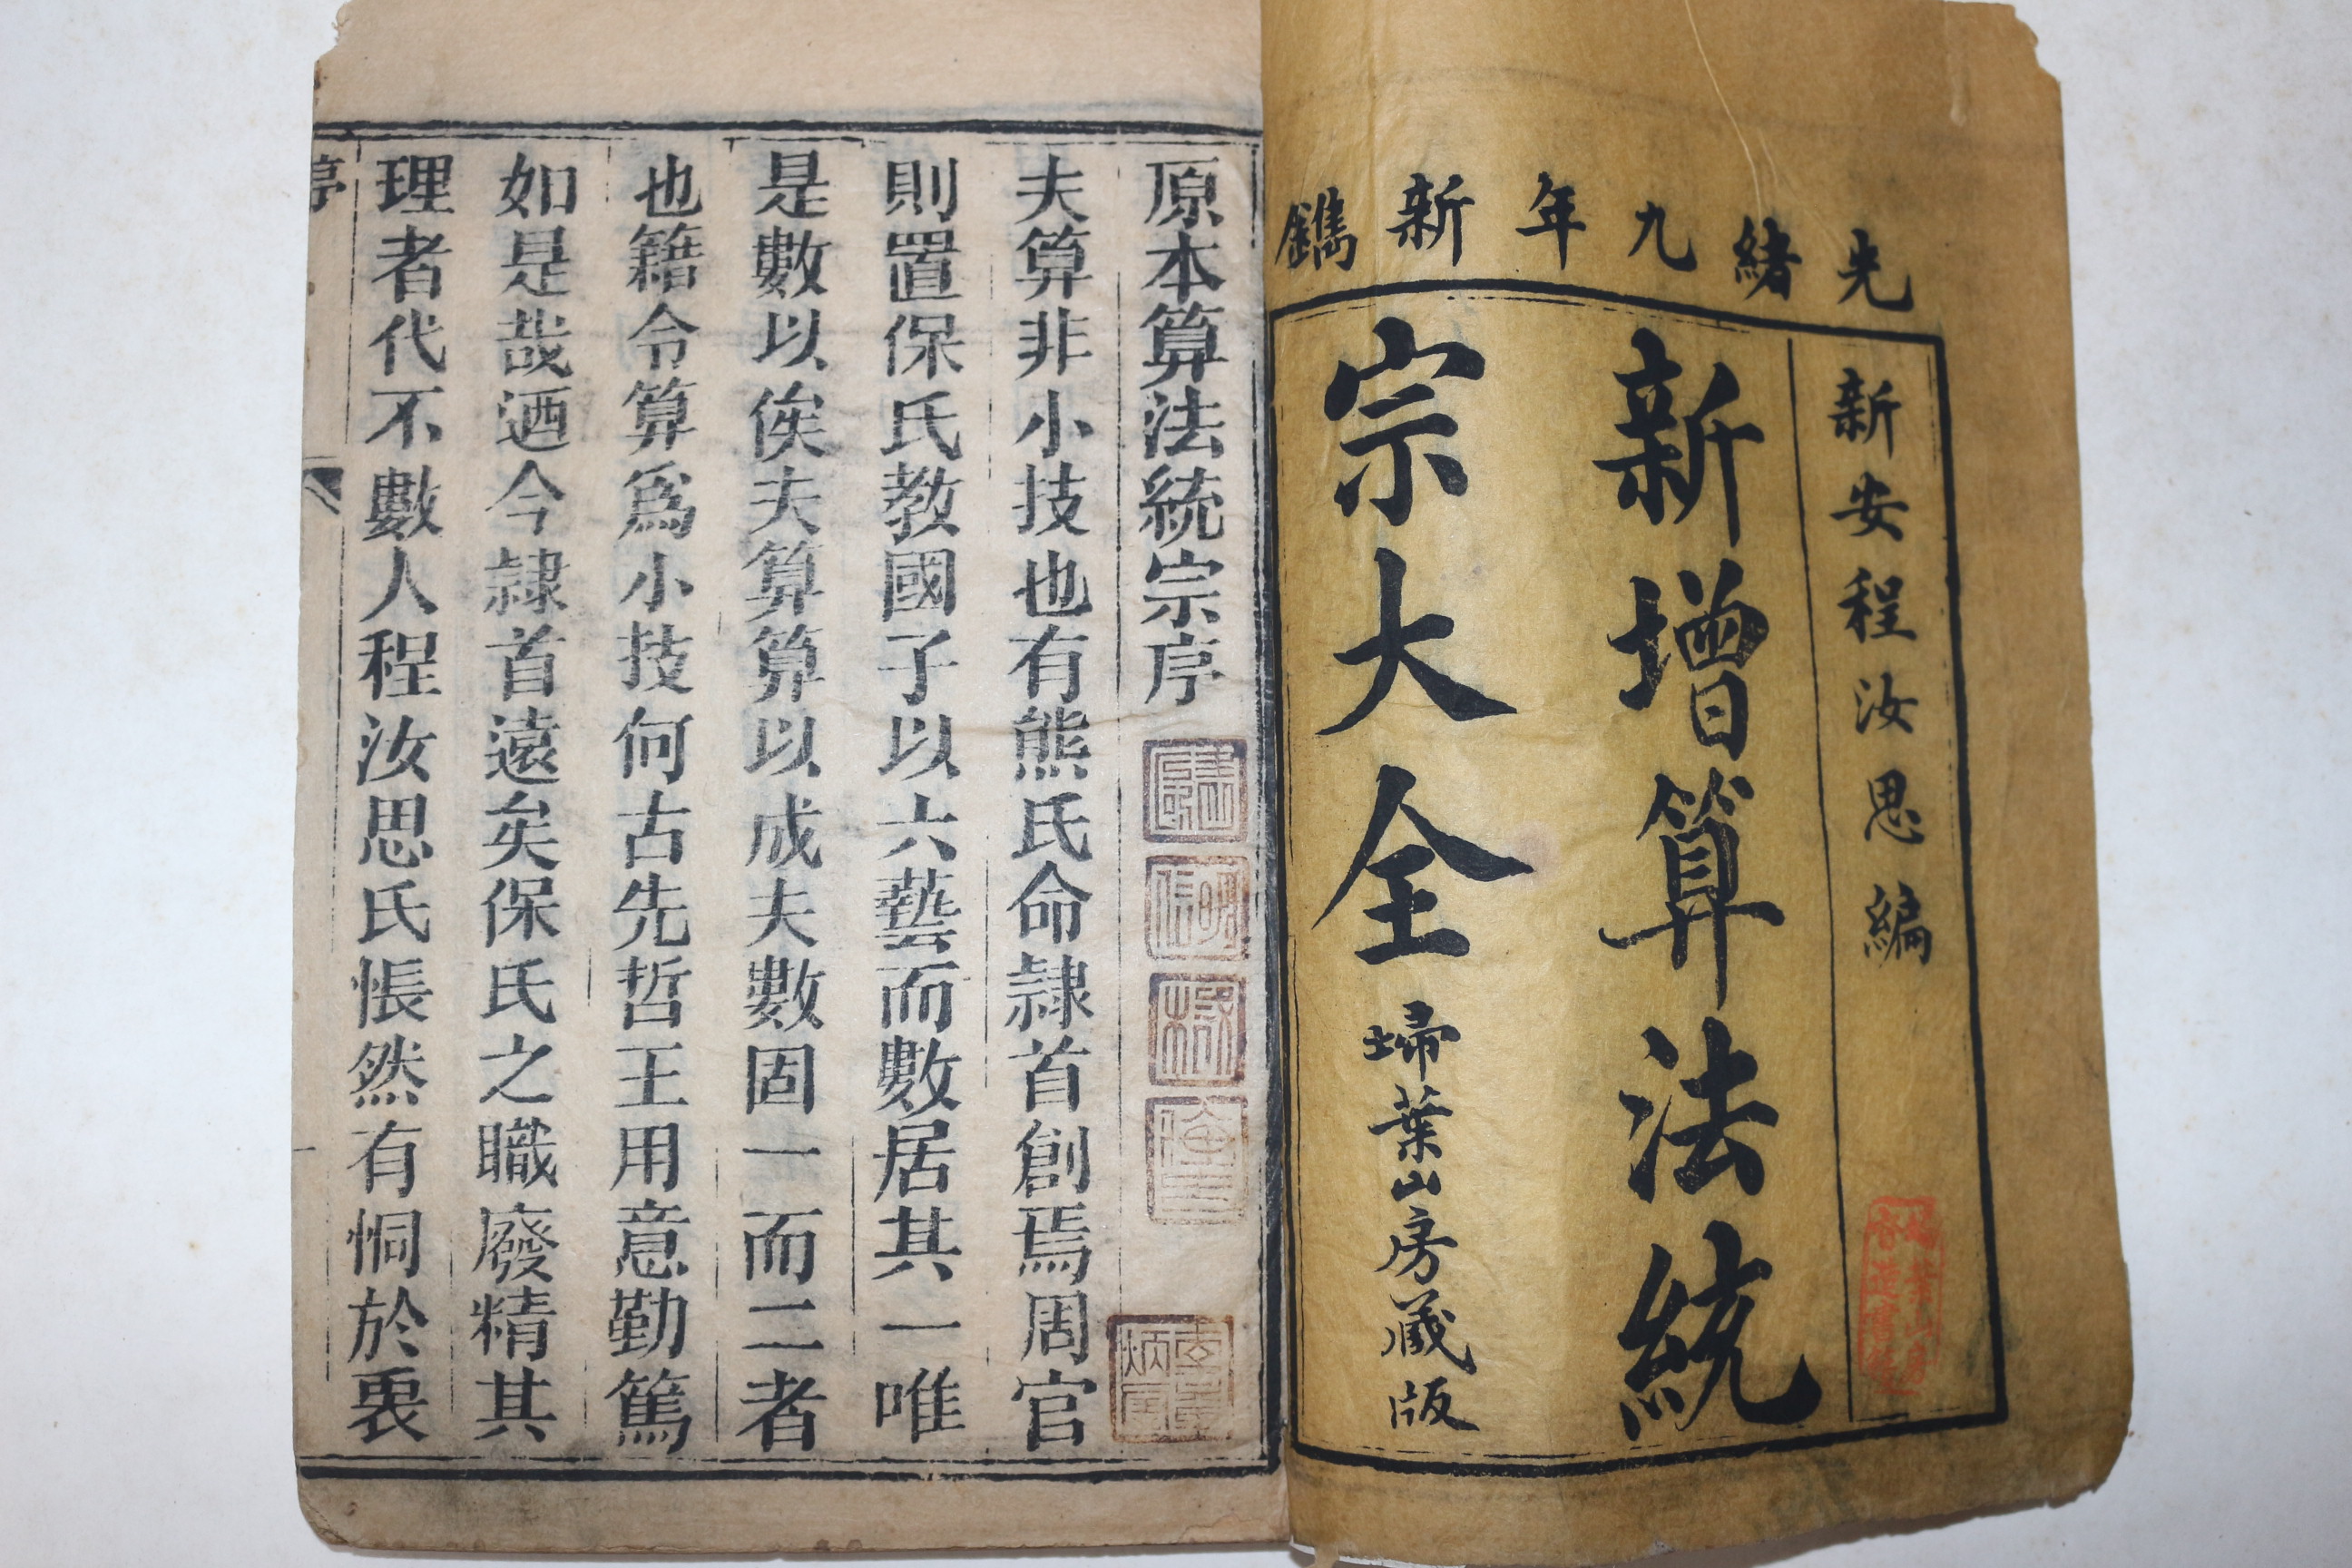 光緒九年新鐫
新安程汝思編
新增算法統
宗大全
埽葉山房藏版
原本算法統宗序
夫算非小技也有熊氏命隷首創焉周官
則置保氏教國子以六藝而數居其一唯
是數以俟夫算算以成夫數固一而二者
也籍令算爲小技何古先哲王用意勤篤
如是哉迺今隷首遠矣保氏之職廢精其
理者代不數人程汝思氏悵然有恫於衷